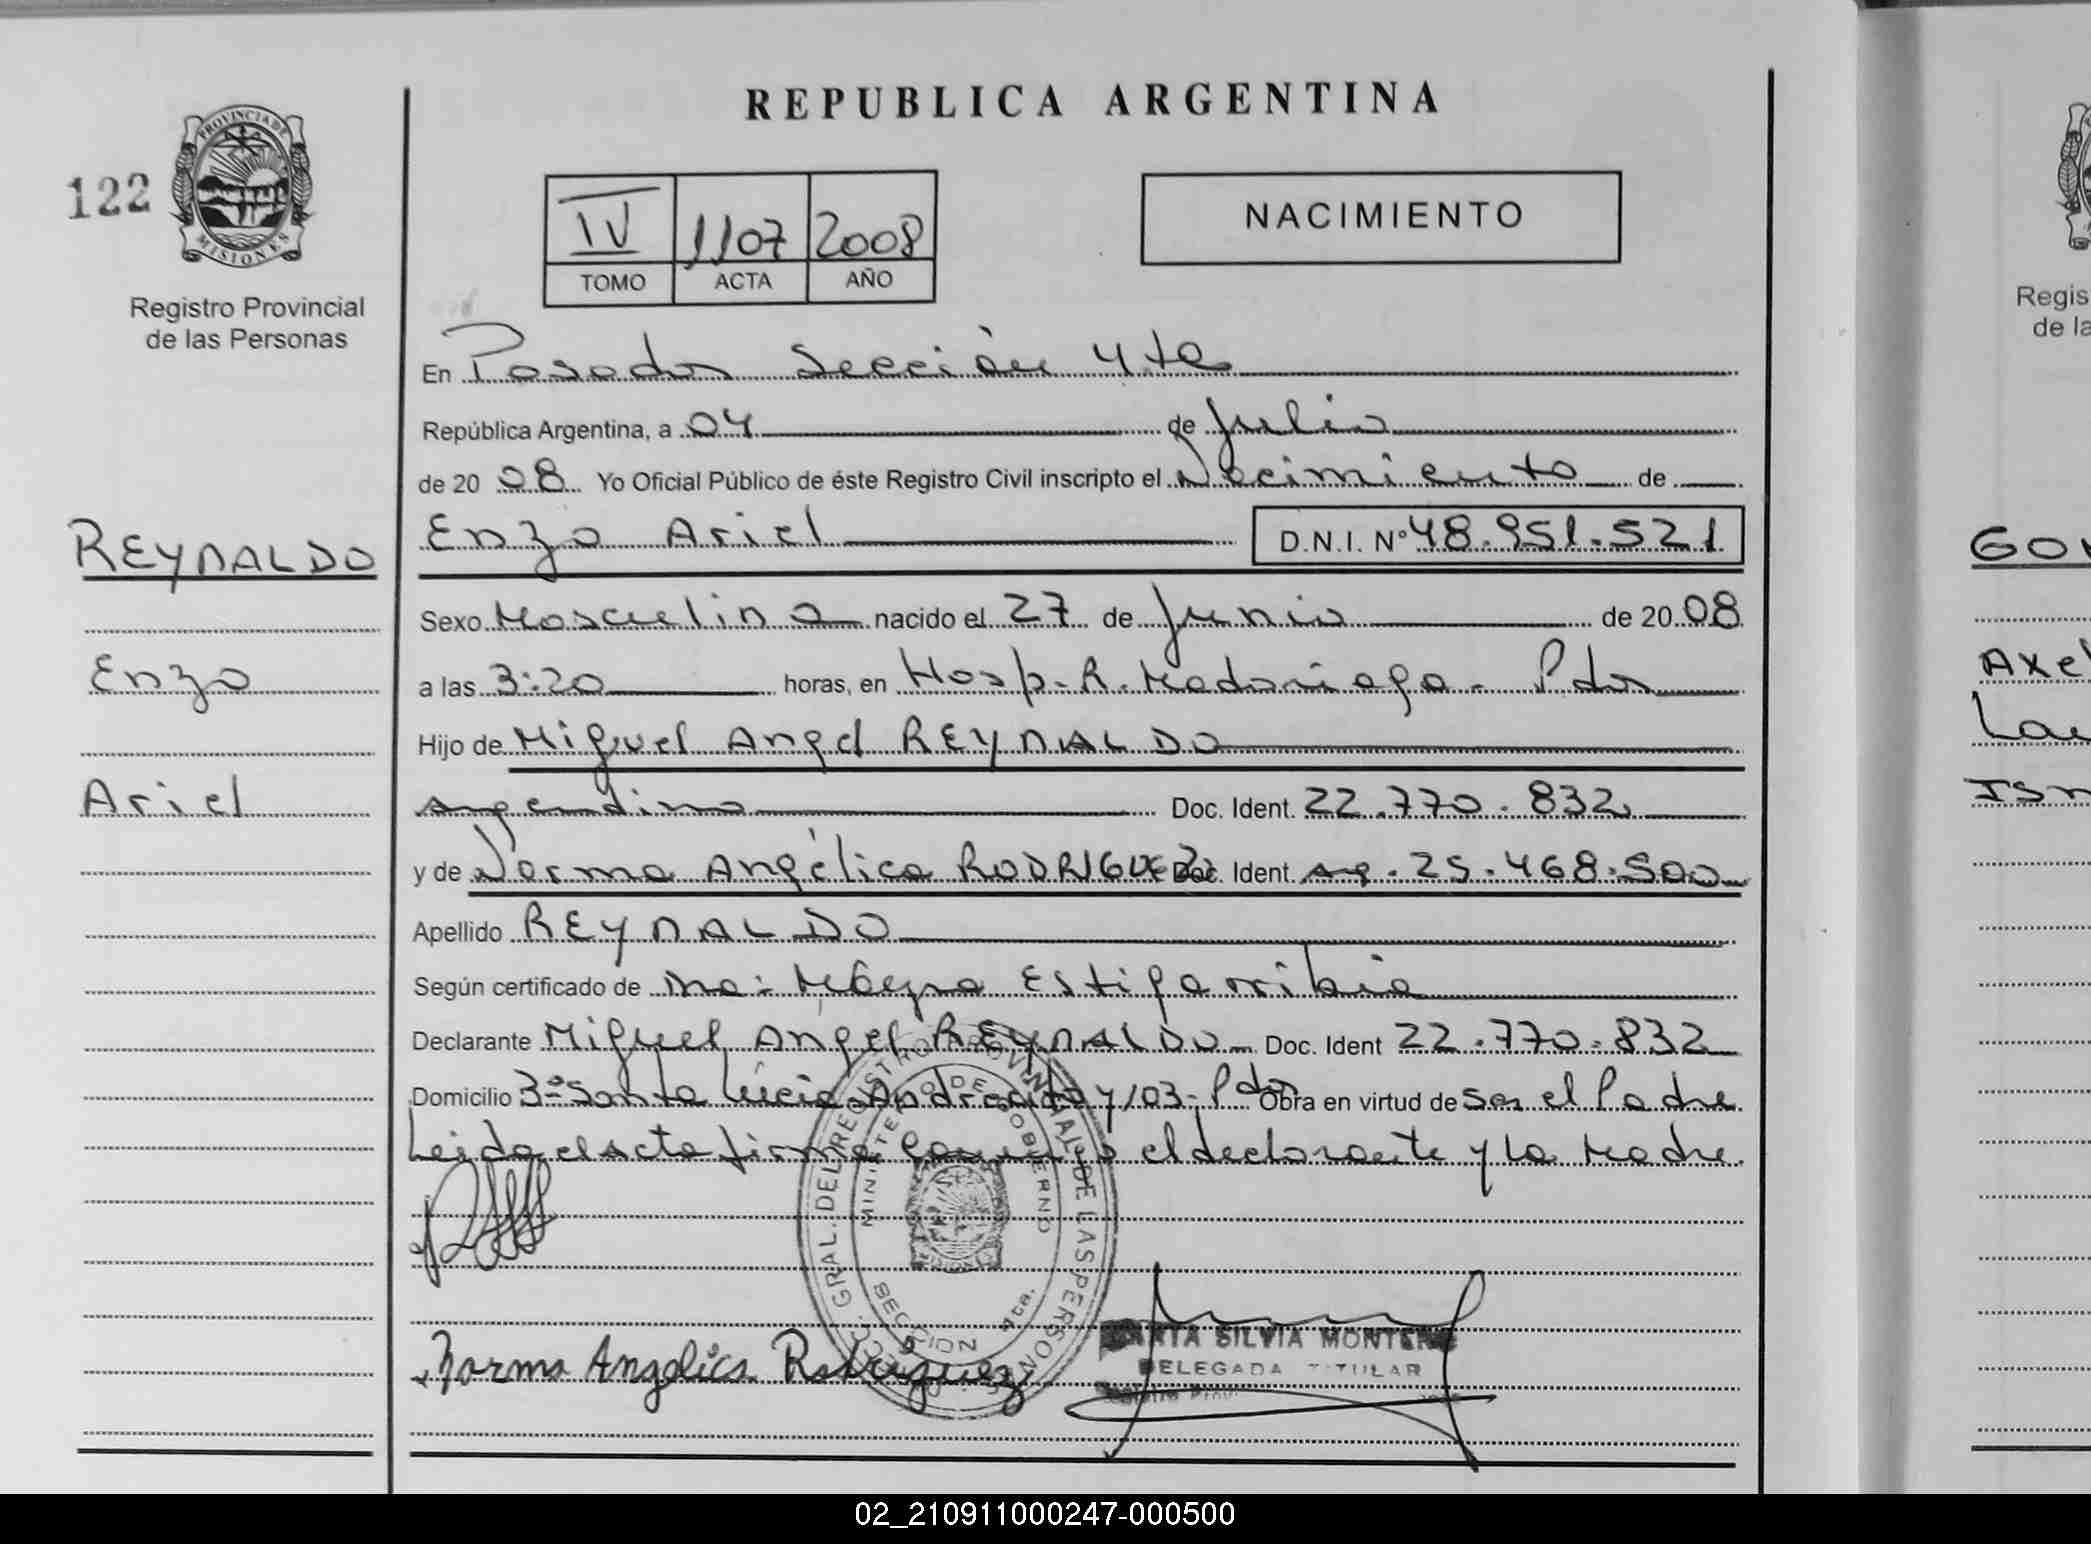 REPUBLICA ARGENTINA
122
PROVINCIA DE
MISIONES
Registro Provincial
de las Personas
IV 1107 2008
TOMO ACTA AÑO
NACIMIENTO
En Posadas Sección 4ta
República Argentina, a 04 de Julio
de 20 08 Yo Oficial Público de éste Registro Civil inscripto el Nacimiento de
REYNALDO
Enzo
Ariel
Enzo Ariel D.N.I. Nº 48.951.521
Sexo Masculino nacido el 27 de Junio de 20 08
a las 3:20 horas, en Hosp. R. Madariaga - Pdas
Hijo de Miguel Angel REYNALDO
Argentino Doc. Ident. 22.770.832
y de Norma Angélica RODRIGUEZ Doc. Ident. Arg. 25.468.500
Apellido REYNALDO
Según certificado de Estigarribia
Declarante Miguel Angel REYNALDO Doc. Ident 22.770.832
Domicilio Santa Lucia Pdas Obra en virtud de Ser el Padre
Leida el acta firma el declarante y la Madre
GRAL. DEL REGISTRO PROVINCIAL DE LAS PERSONAS
MINISTERIO DE GOBIERNO
SECCION 4ta.
Norma Angelica Rodriguez
SILVIA MONTERO
DELEGADA TITULAR
Regis
de la
GO
Axel
02_210911000247-000500